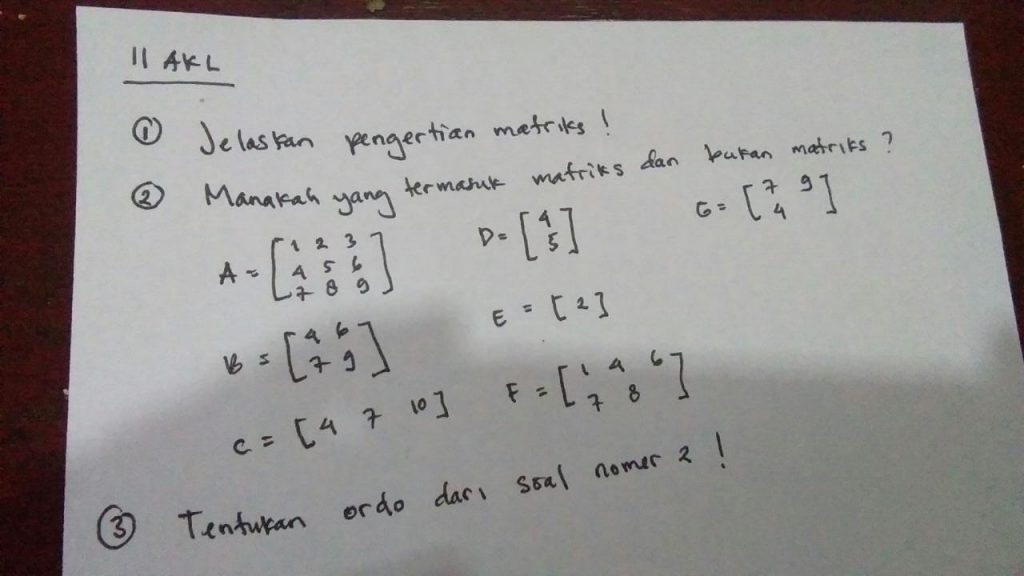 11 AKL
① Jelaskan pengertian matriks !
② Manakah yang termasuk matriks dan bukan matriks ?
A = [1 2 3
4 5 6
7 8 9]
D = [4
5]
G = [7 9
4]
B = [4 6
7 9]
E = [2]
C = [4 7 10]
F = [1 4 6
7 8]
③ Tentukan ordo dari soal nomer 2 !